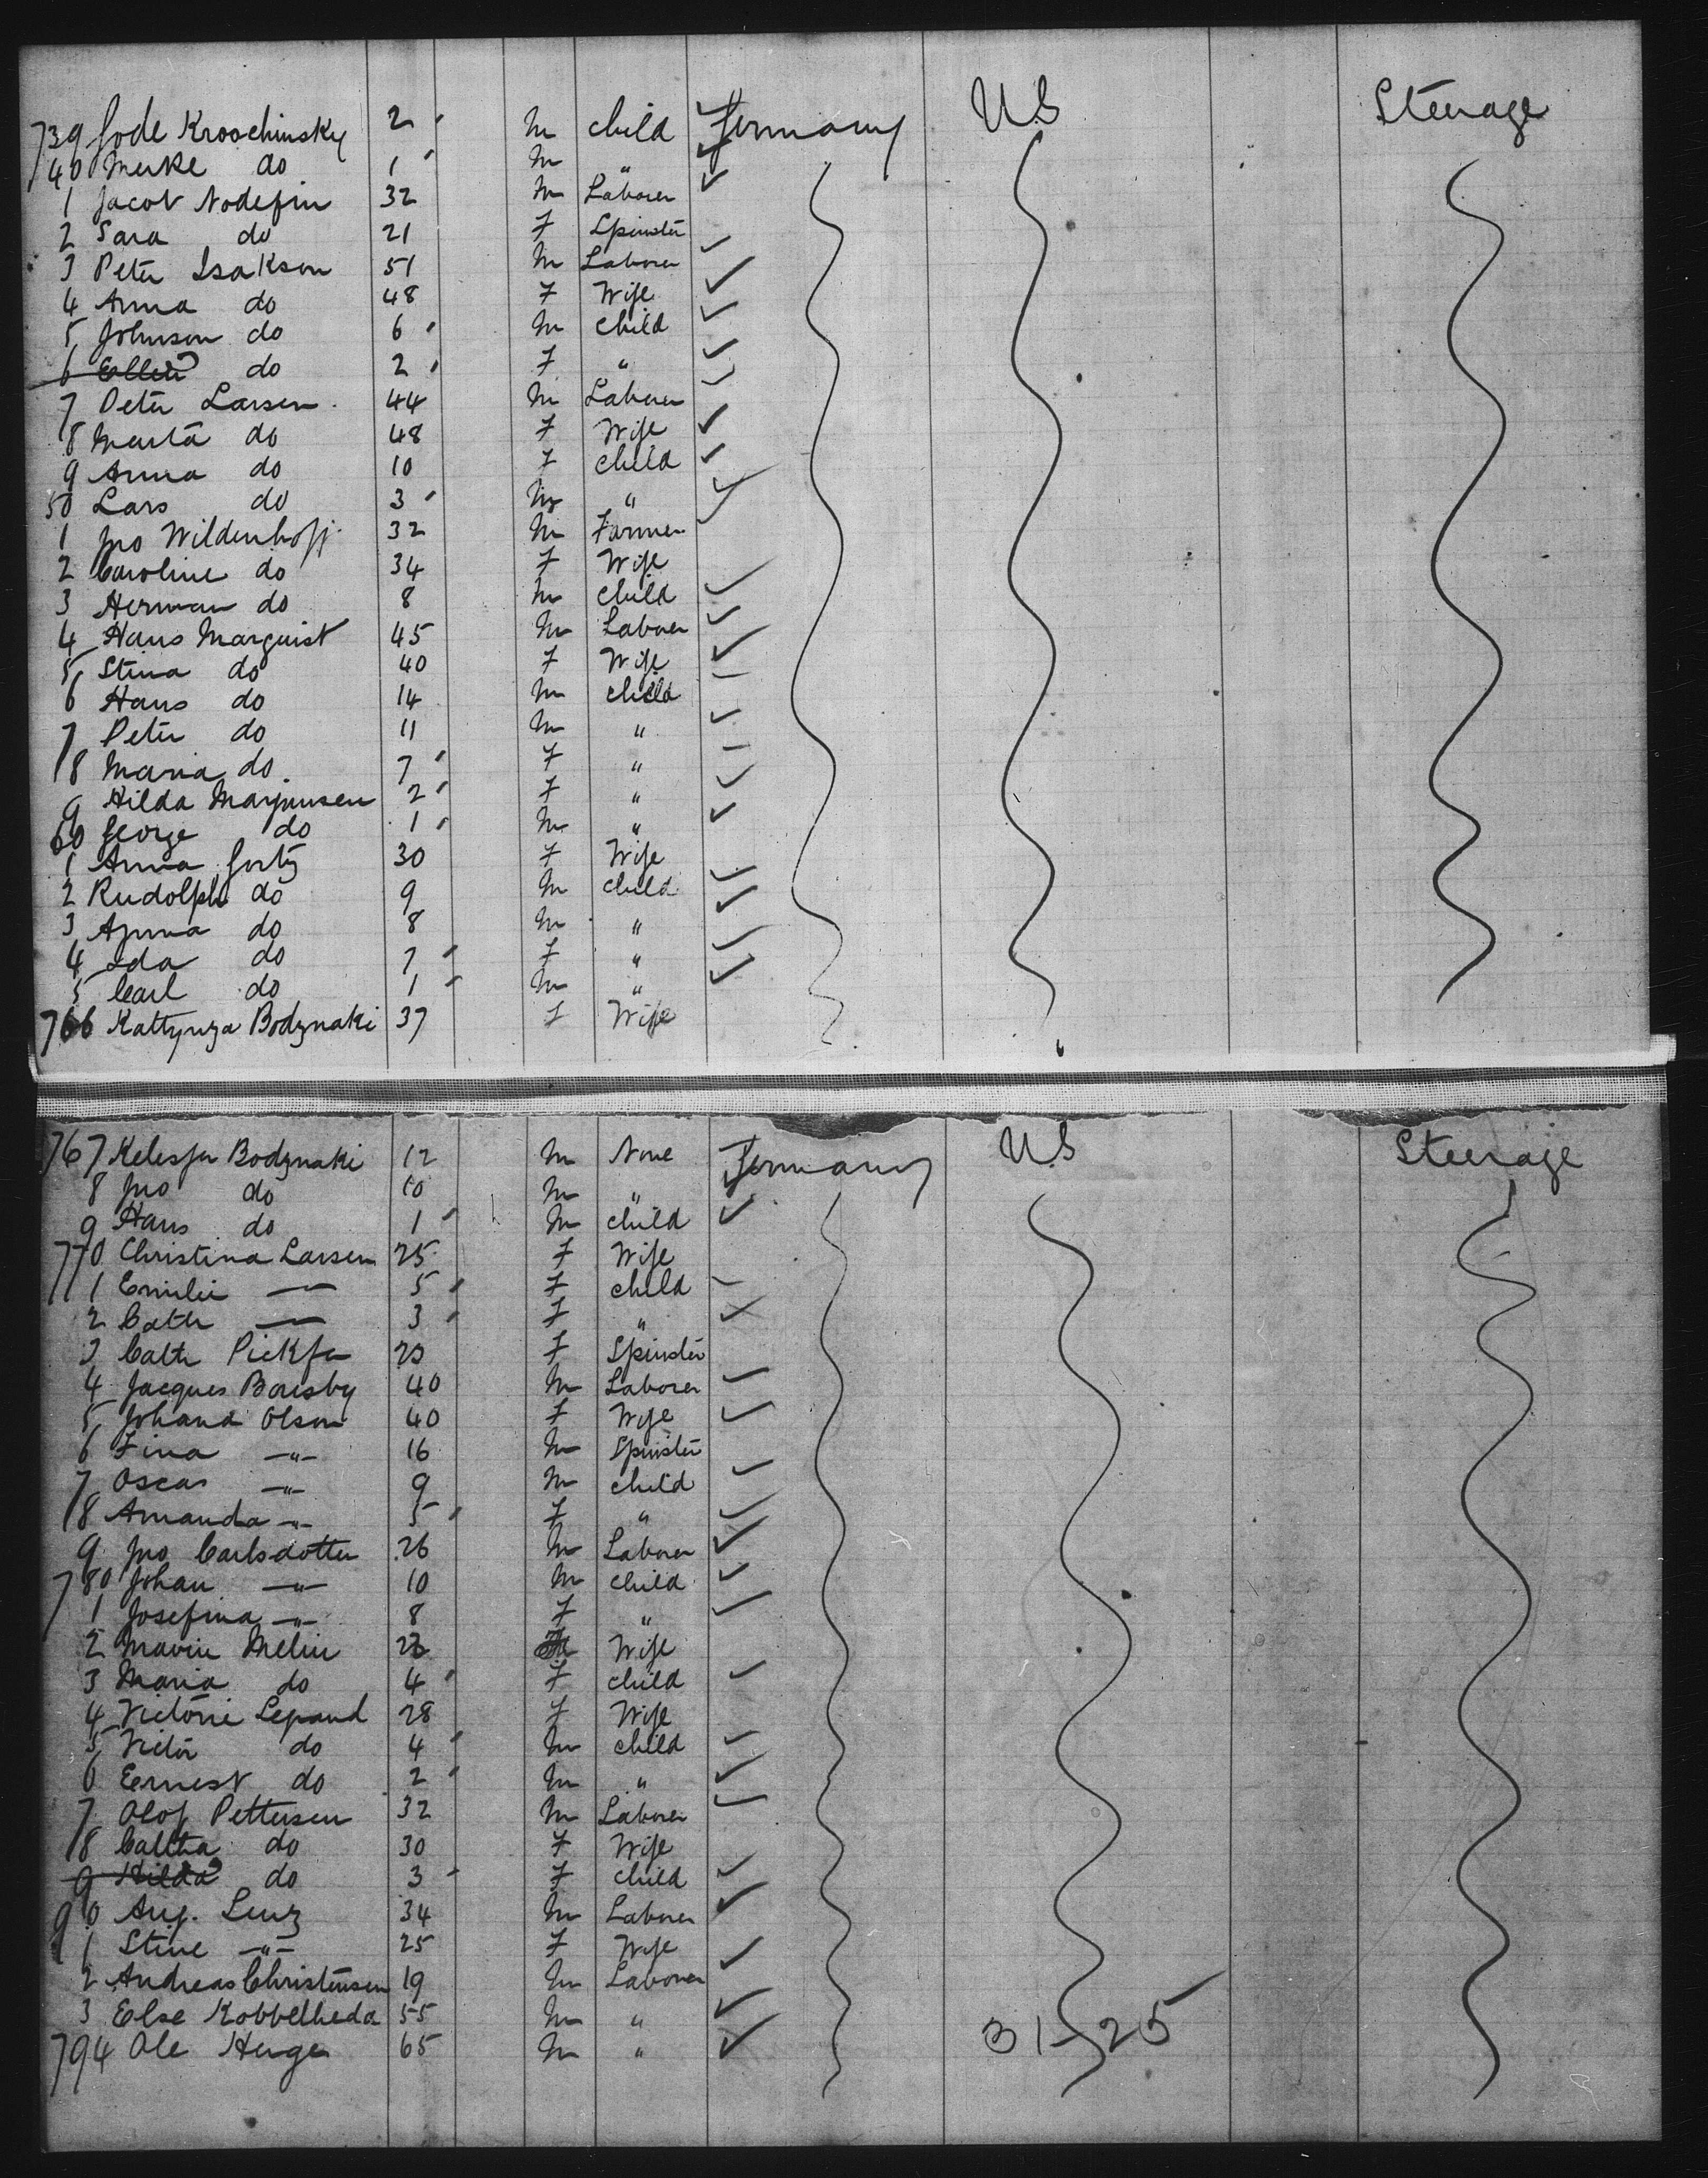 739 Gode Kroschinsky 2 m child Germany US Steerage
40 Meike do 1 m "
1 Jacob Nodefin 32 m Laborer
2 Sara do 21 F Spinster
3 Peter Isakson 51 m Laborer
4 Anna do 48 F Wife
5 Johnson do 6 m child
6 Ellen do 2 F "
7 Peter Larsen 44 m Laborer
8 Marta do 48 F Wife
9 Anna do 10 F child
50 Lars do 3 m "
1 Jno Wildenhoff 32 m Farmer
2 Caroline do 34 F Wife
3 Herman do 8 m child
4 Hans Marquist 45 m Laborer
5 Stina do 40 F Wife
6 Hans do 14 m child
7 Peter do 11 m "
8 Maria do 7 F "
9 Hilda 2 F "
60 George do 1 m "
1 Anna Gortz 30 F Wife
2 Rudolph do 9 m child
3 do 8 m "
4 Ida do 7 F "
5 Carl do 1 m "
766 Kattynza Bodznaki 37 F Wife
767 Bodznaki 12 m None Germany US Steerage
8 Jno do 10 m "
9 Hans do 1 m child
770 Christina Larsen 25 F Wife
1 Emilie — 5 F child
2 Cath — 3 F "
3 Cath F Spinster
4 Jacques 40 m Laborer
5 Johana Olson 40 F Wife
6 Fina -"- 16 m Spinster
7 Oscar -"- 9 m child
8 Amanda -"- 5 F "
9 Jno Carlsdotter 26 m Laborer
780 Johan -"- 10 m child
1 Josefina -"- 8 F "
2 Melin Wife
3 Maria do 4 F child
4 Victorie Lepand 28 F Wife
5 Victor do 4 m child
6 Ernest do 2 m "
7 Olof Pettersen 32 m Laborer
8 do 30 F Wife
9 Hilda do 3 F child
90 Aug. Lenz 34 m Laborer
1 Stine -"- 25 F Wife
2 Andreas Christensen 19 m Laborer
3 Else Kobbelheda 55 m "
794 Ole Henge 65 m " 31-25